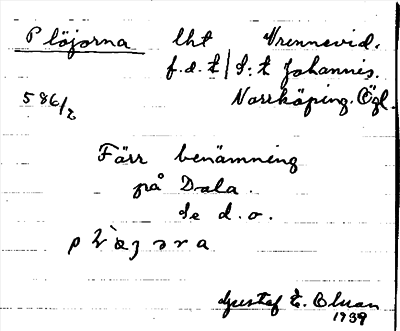 Plöjorna lht Vrennevid.
f.d. t/S:t Johannis.
586/2 Norrköping. Ögl.
Förr benämning
på Dala.
Se d.o.
Gustaf E. Olsson
1939